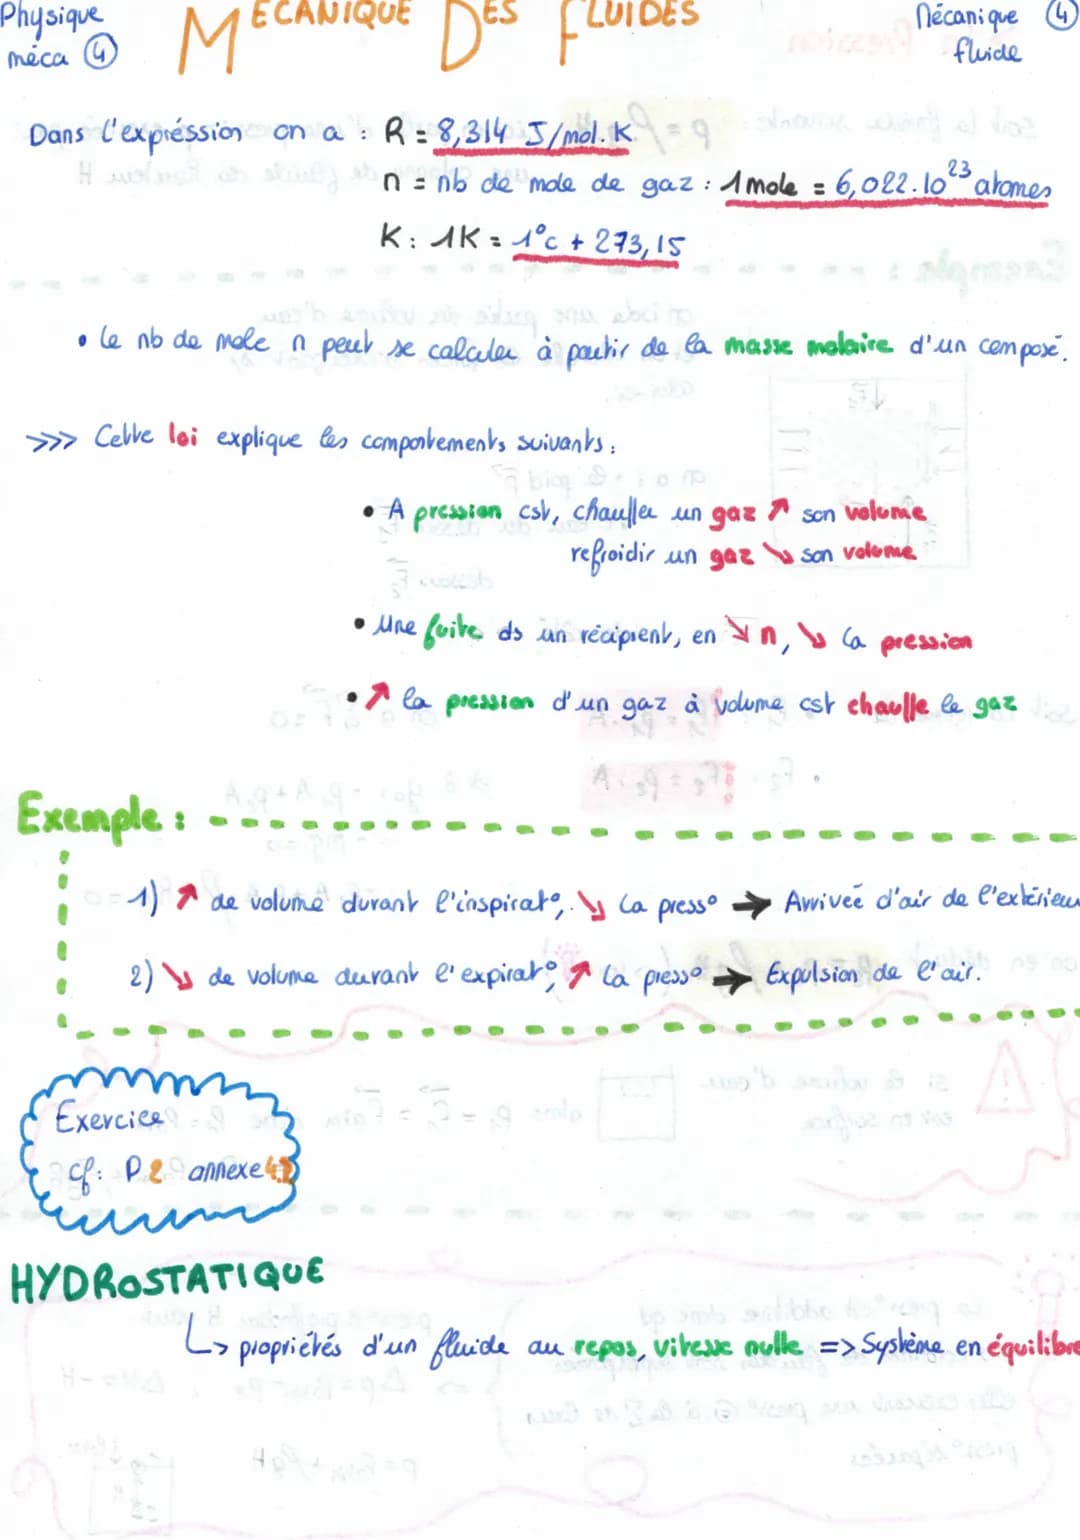 Physique
méca 4
MECANIQUE DES FLUIDES
Mécanique 4
fluide
Dans l'expréssion on a : R = 8,314 J/mol.K
n = nb de mole de gaz : 1 mole = 6,022.10²³ atomes
K : 1K = 1°c + 273,15
• le nb de mole n peut se calculer à partir de la masse molaire d'un composé.
>>> Cette loi explique les comportements suivants :
• A pression cst, chauffer un gaz ↗ son volume
refroidir un gaz ↘ son volume
• Une fuite ds un récipient, en ↘ n, ↘ la pression
• ↗ la pression d'un gaz à volume cst chauffe le gaz
Exemple :
1) ↗ de volume durant l'inspirat°, ↘ la press° → Arrivée d'air de l'extérieu
2) ↘ de volume durant l'expirat°, ↗ la press° → Expulsion de l'air.
Exercice
cf: P2 annexe
HYDROSTATIQUE
↳ propriétés d'un fluide au repos, vitesse nulle => Système en équilibre